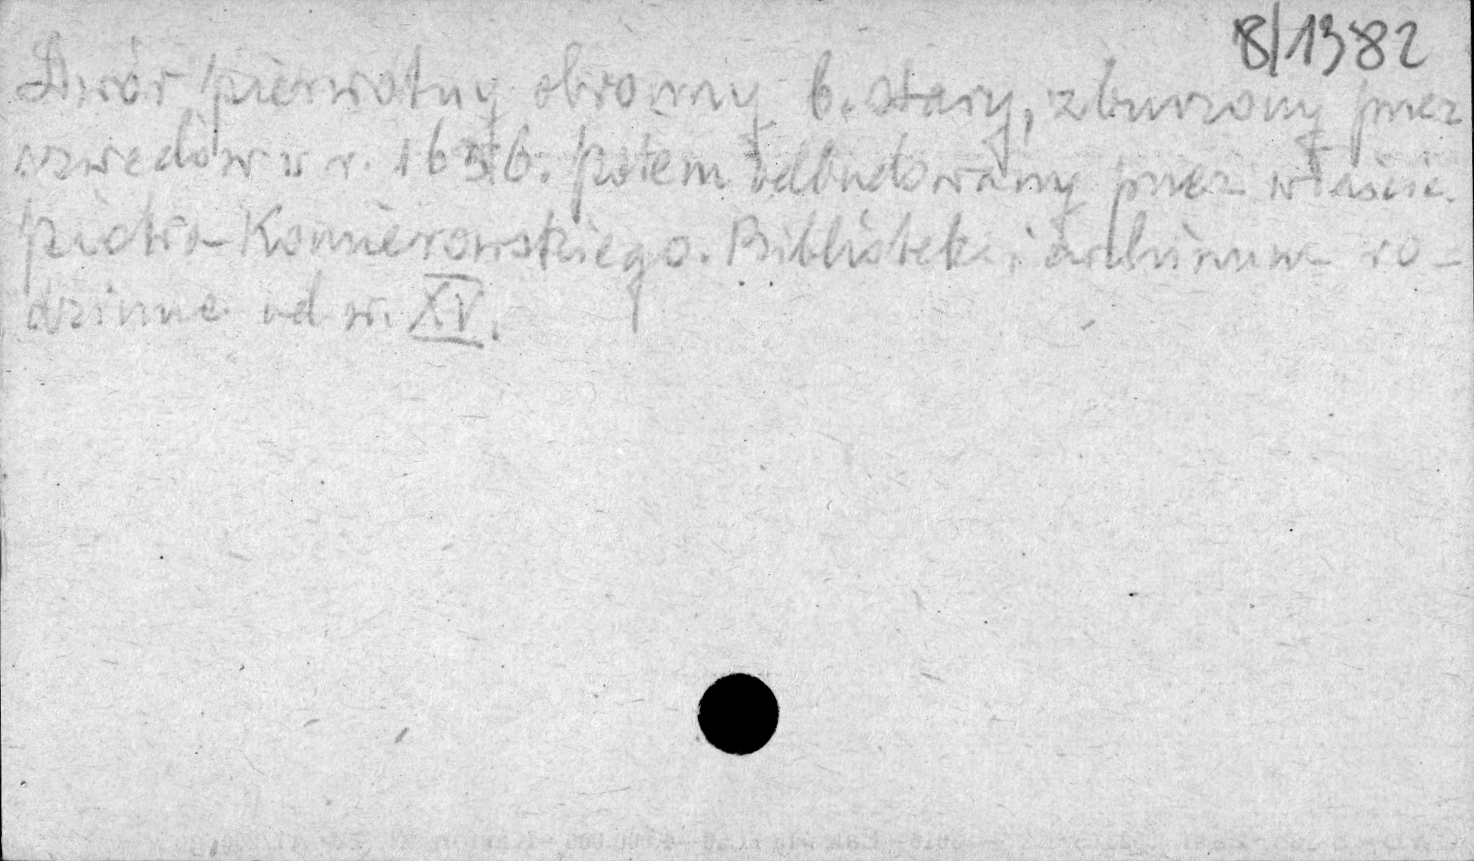 8/1382
Dwór pierwotny obronny b. stary, zburzony przez
szwedów w r. 1656. potem odbudowany przez właścic.
Piotra Komierowskiego. Biblioteka i archiwum ro-
dzinne od w. XV.